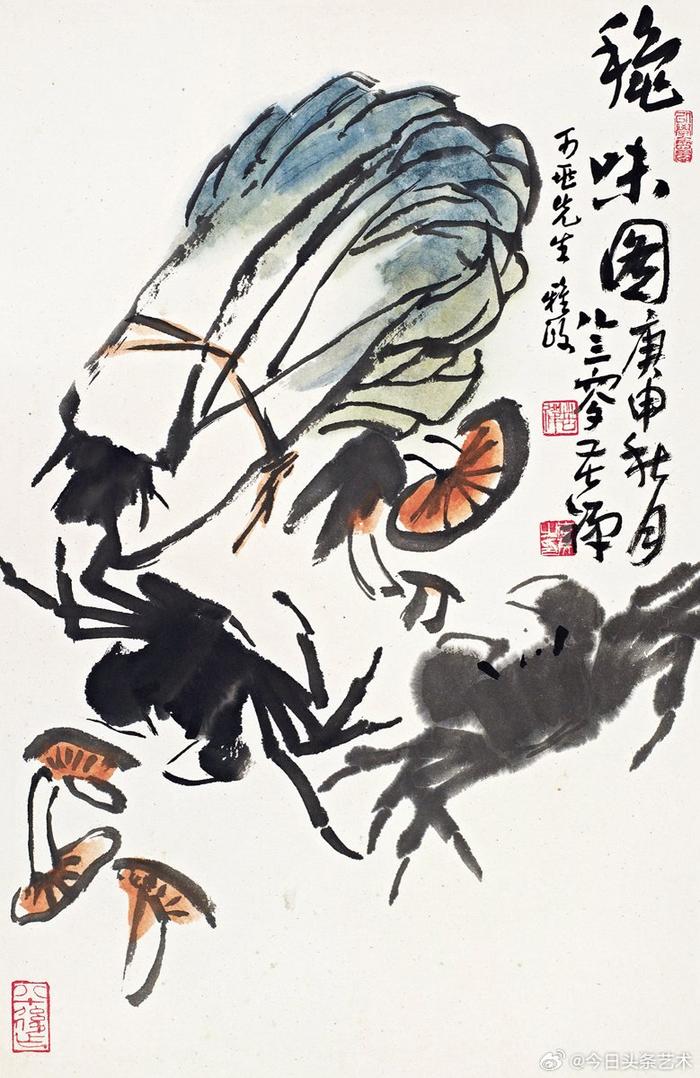 穐味图
庚申秋月
八三叟苦禅
亚先生雅政
@今日头条艺术